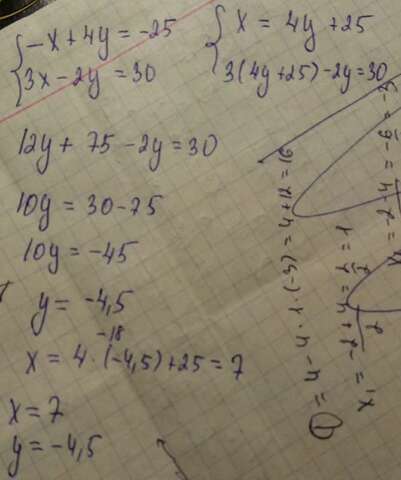 {-x + 4y = -25
3x - 2y = 30
{x = 4y + 25
3(4y + 25) - 2y = 30
12y + 75 - 2y = 30
10y = 30 - 75
10y = -45
y = -4,5
-18
x = 4 · (-4,5) + 25 = 7
x = 7
y = -4,5
D = 4 - 4 · 1 · (-3) = 4 + 12 = 16